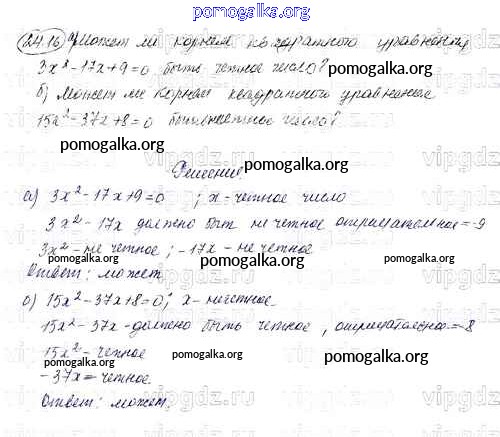 pomogalka.org
24.16 а) Может ли корнем квадратного уравнения
3x² - 17x + 9 = 0 быть четное число?
pomogalka.org
б) Может ли корнем квадратного уравнения
15x² - 37x + 8 = 0 быть нечетное число?
pomogalka.org
Решение:
pomogalka.org
а) 3x² - 17x + 9 = 0 ; x - четное число
pomogalka.org
3x² - 17x должно быть не четное отрицательное = -9
3x² - не четное ; -17x - не четное
pomogalka.org
Ответ: может
pomogalka.org
б) 15x² - 37x + 8 = 0; x - нечетное.
pomogalka.org
15x² - 37x - должно быть четное, отрицательное = -8
15x² - четное
pomogalka.org pomogalka.org
-37x = четное.
Ответ: может.
pomogalka.org
vipgdz.ru